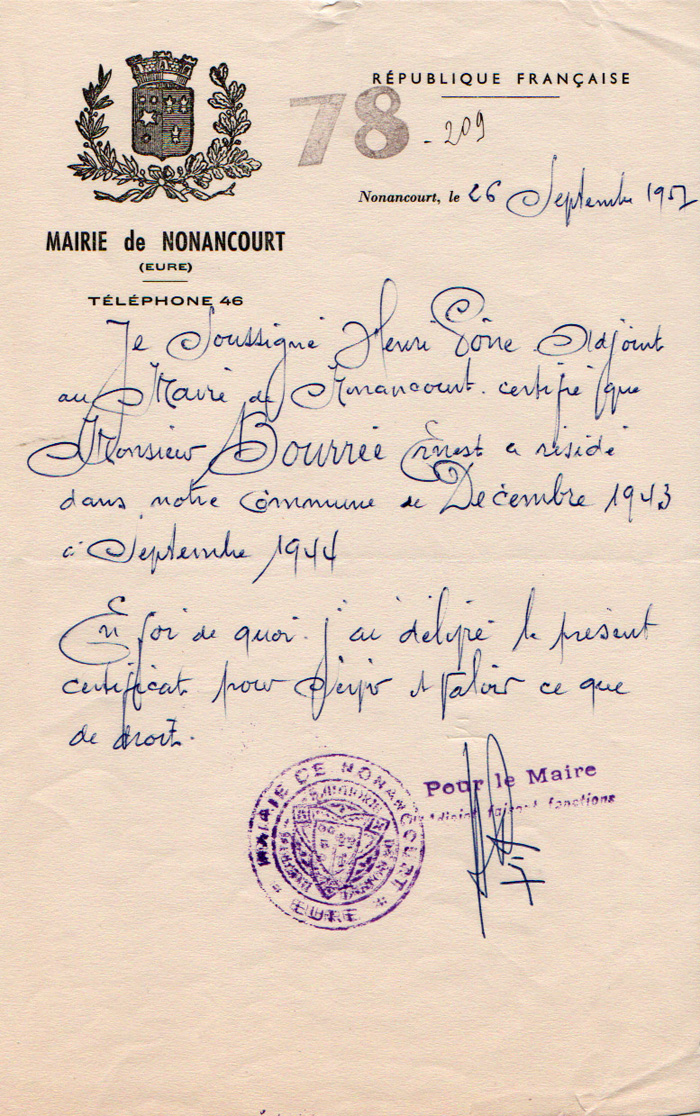 RÉPUBLIQUE FRANÇAISE
78 - 209
Nonancourt, le 26 Septembre 1957
MAIRIE de NONANCOURT
(EURE)
TÉLÉPHONE 46
Je Soussigné Henri Adjoint
au Maire de Nonancourt. certifie que
Monsieur Bourrée Ernest a résidé
dans notre Commune de Décembre 1943
à Septembre 1944
En foi de quoi j'ai délivré le présent
certificat pour Servir et Valoir ce que
de droit.
Pour le Maire
l'Adjoint faisant fonctions
MAIRIE DE NONANCOURT
* EURE *